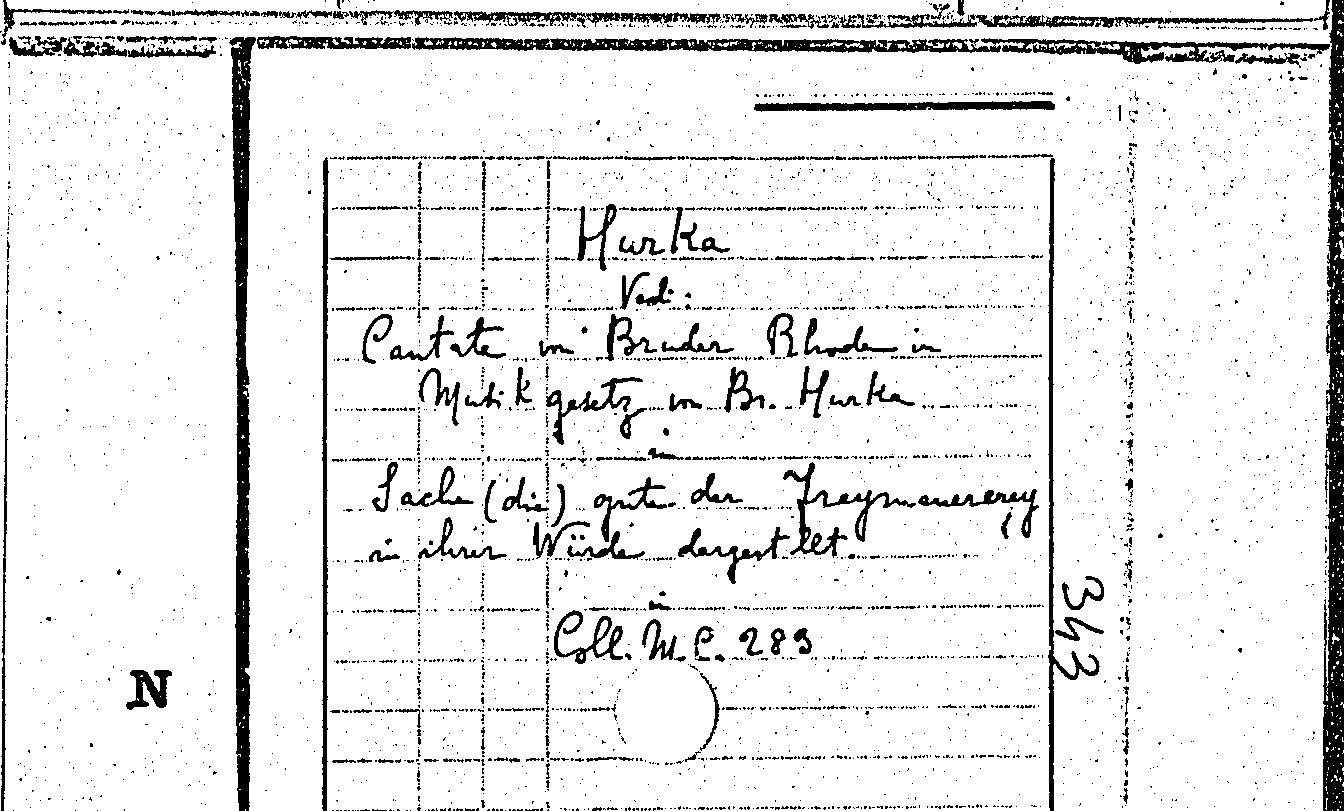 Hurka
Vedi:
Cantate von Bruder Rhode in
Musik gesetz von Br. Hurka
in
Sache (die) gute der Freymauererey
in ihrer Würde dargestellt.
in
Coll. M.C. 283
343
N